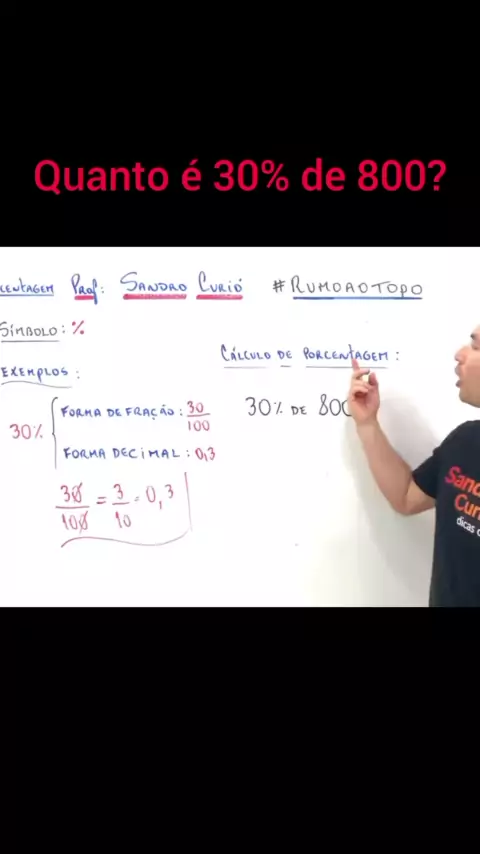 Quanto é 30% de 800?
CENTAGEM PROF: SANDRO CURIÓ #RUMOAOTOPO
SÍMBOLO: %
CÁLCULO DE PORCENTAGEM:
EXEMPLOS:
30%
FORMA DE FRAÇÃO: 30/100
30% DE 800
FORMA DECIMAL: 0,3
30/100 = 3/10 = 0,3
Sand
Curi
dicas